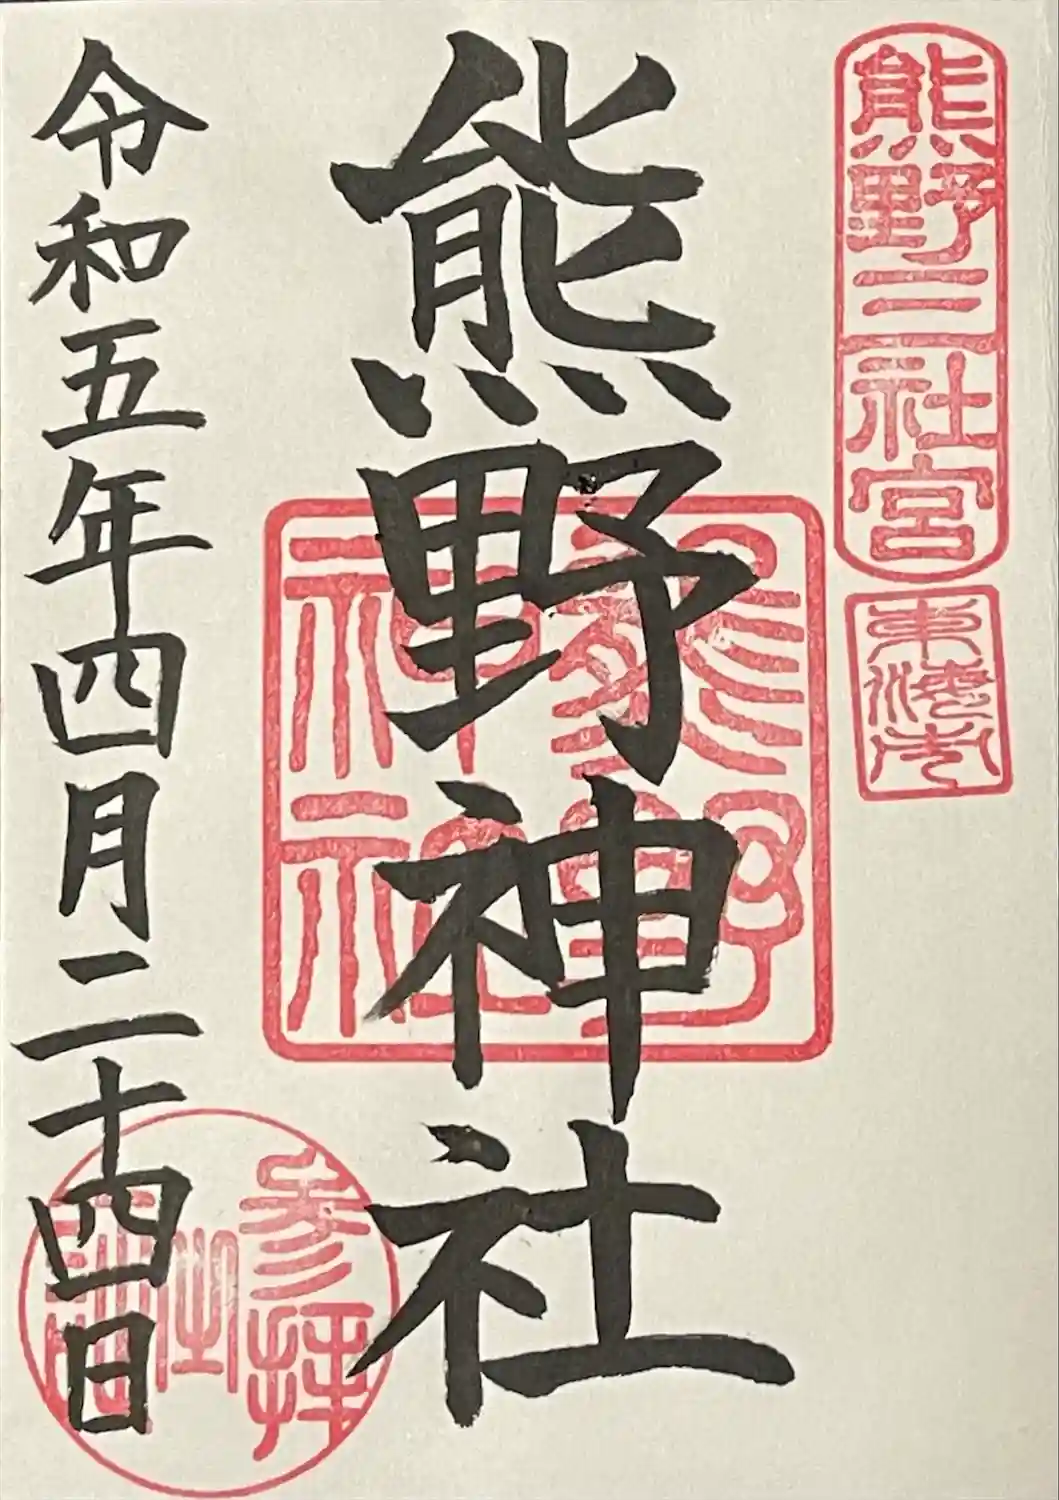 熊野三社宮
東海市
熊野神社
熊野神社
令和五年四月二十四日
参拝